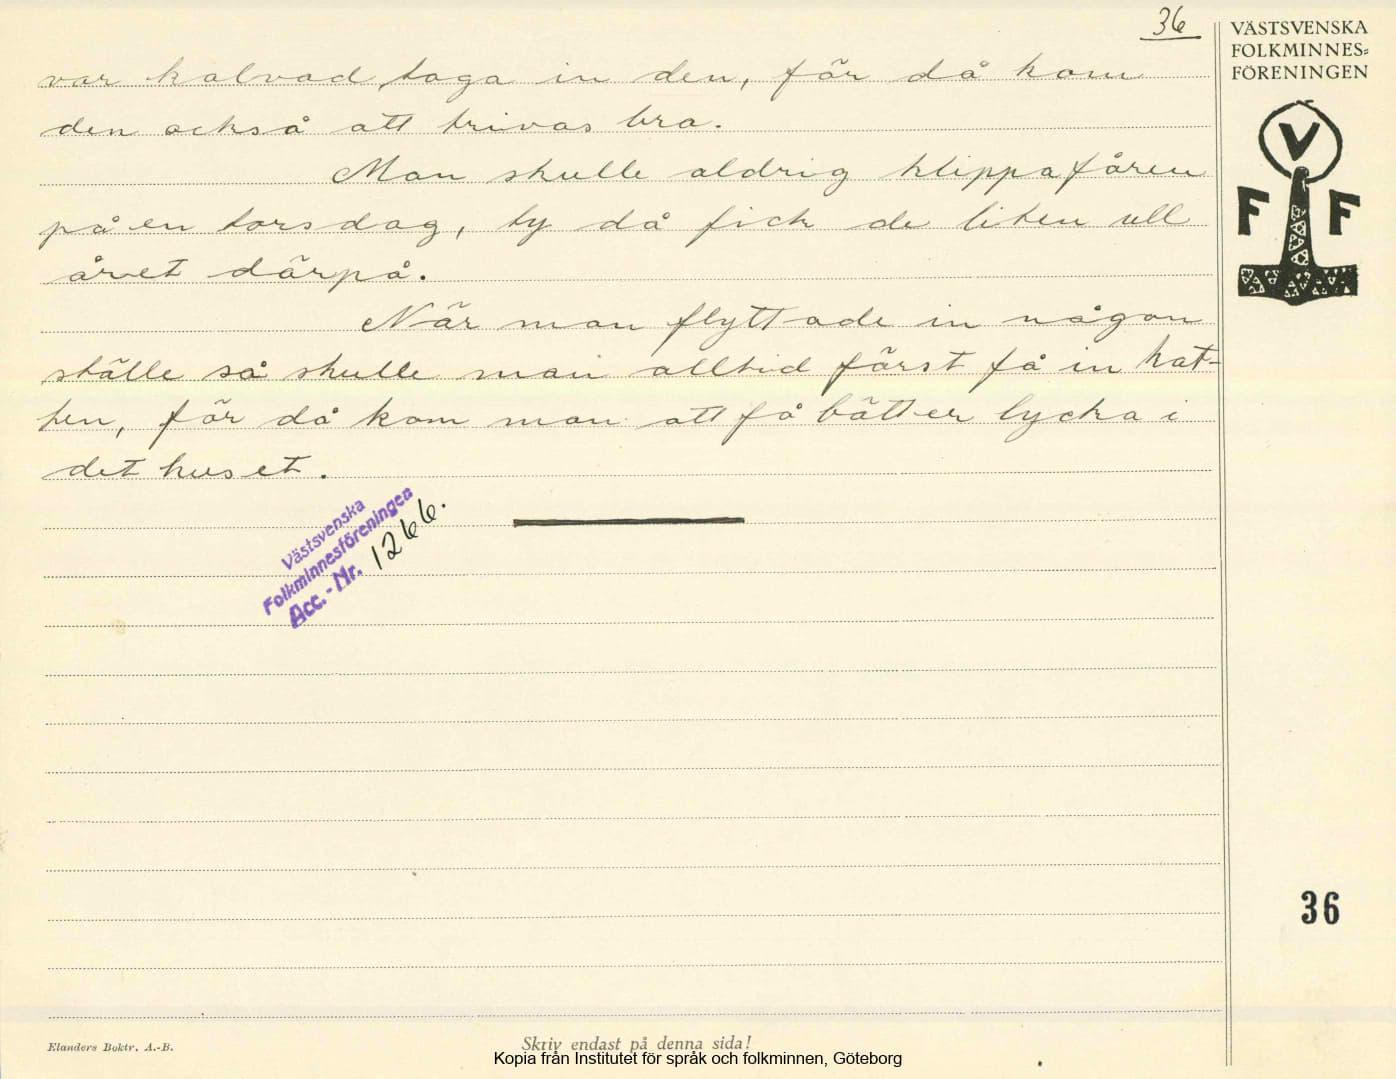 36
VÄSTSVENSKA
FOLKMINNES-
FÖRENINGEN
V
F F
var kalvad, taga in den, för då kom
den också att trivas bra.
Man skulle aldrig klippa fåren
på en torsdag, ty då fick de liten ull
året därpå.
När man flyttade in någon
ställe så skulle man alltid först få in kat-
ten, för då kom man att få bätter lycka i
det huset.
Västsvenska
Folkminnesföreningen
Acc.-Nr. 1266.
36
Elanders Boktr. A.-B.
Skriv endast på denna sida!
Kopia från Institutet för språk och folkminnen, Göteborg